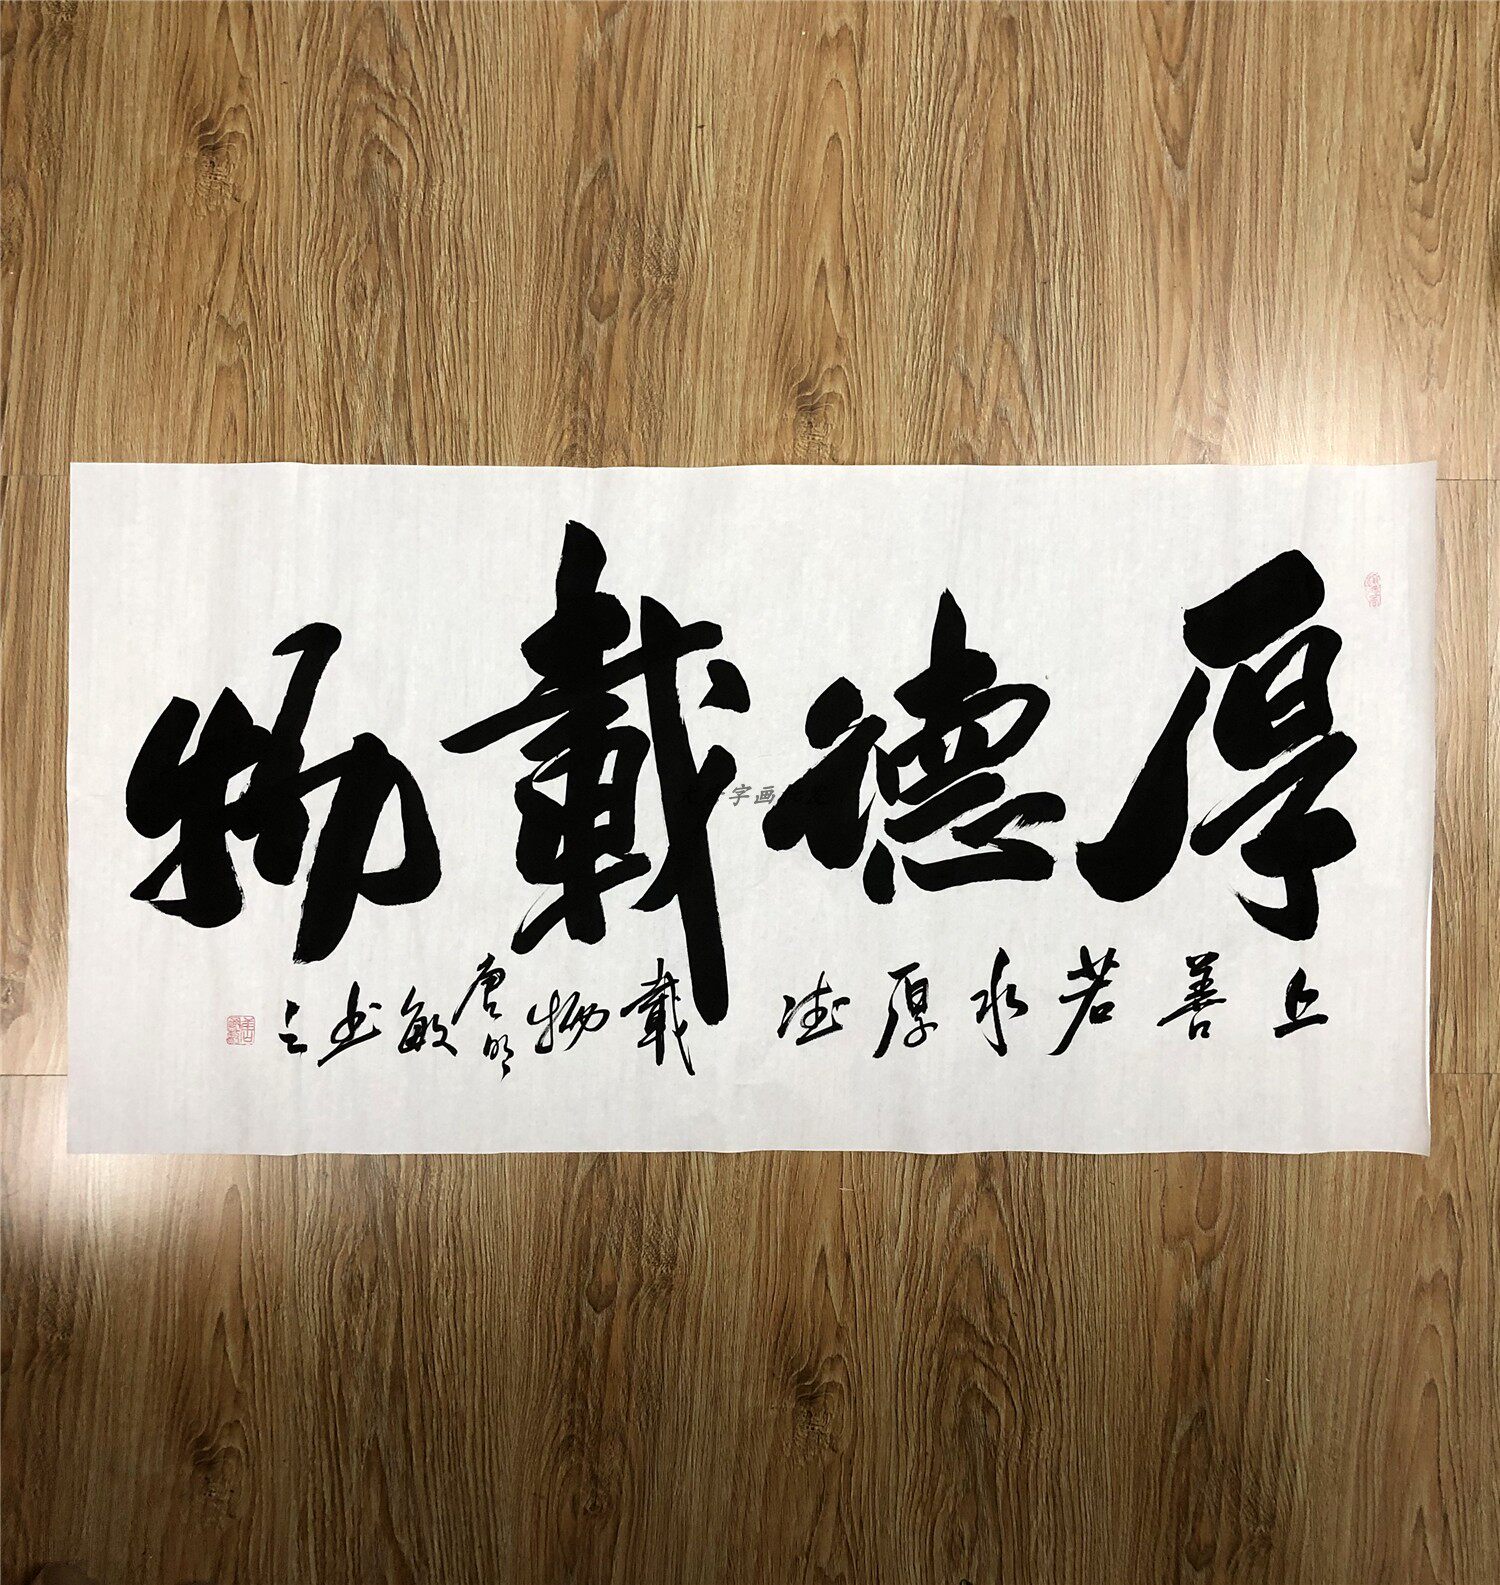 厚德載物
上善若水厚德載物唐明敏书之
字画